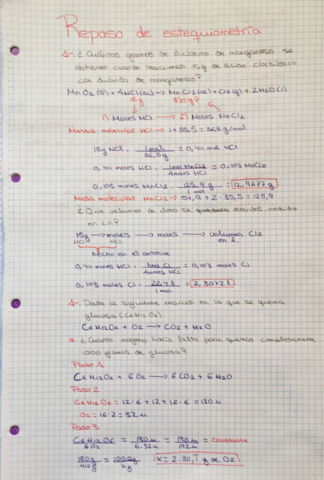 Repaso de estequiometría
1- ¿Cuántos gramos de dicloruro de manganeso se
obtienen cuando reaccionan 15g de ácido clorhídrico
con dióxido de manganeso?
MnO2(s) + 4HCl(ac) → MnCl2(ac) + Cl2(g) + 2H2O(l)
15g
1) Moles HCl → 2) Moles MnCl2
Massa molecular HCl → 1+35,5 = 36,5 g/mol
15g HCl · 1mol / 36,5g = 0,411 mol HCl
0,411 moles HCl · 1mol MnCl2 / 4moles HCl = 0,103 MnCl2
0,103 moles MnCl2 · 125,9 g / 1 mol = 12,9677g
Masa molecular MnCl2 → 54,9 + 2·35,5 = 125,9
¿Que volumen de cloro se obtendrá, medido
en c.n?
15g → moles → moles → volumen Cl2
HCl HCl en l.
hecho en el anterior
0,411 moles HCl · 1mol Cl / 4moles HCl = 0,103 moles Cl
0,103 moles Cl · 22,4 l / 1 mol = 2,3072 l
1- Dada la siguiente reacción en la que se quema
glucosa (C6H12O6)
C6H12O6 + O2 → CO2 + H2O
a. ¿Cuánto oxígeno hacía falta para quemar completamente
1000 gramos de glucosa?
Paso 1
C6H12O6 + 6O2 → 6CO2 + 6H2O
Paso 2
C6H12O6 = 12·6 + 12 + 16·6 = 180u
O2 = 16·2 = 32u
Paso 3
C6H12O6 / 6O2 = 180u / 6·32u = 180u / 192u = constante
1000g / xg